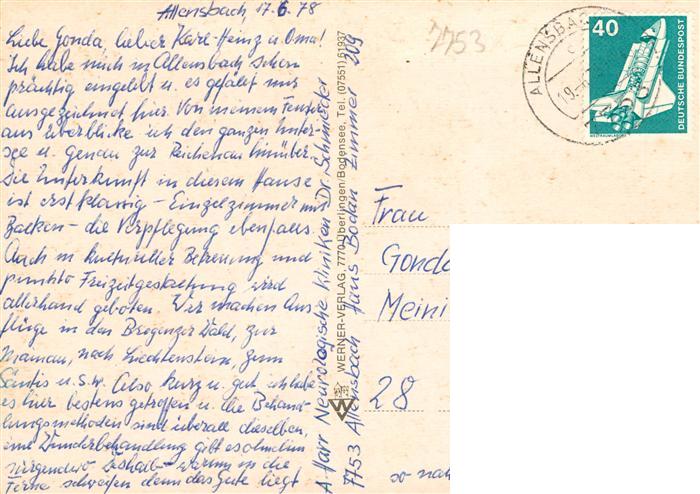 Allensbach, 17.6.78
Liebe Gonda, lieber Karl-Heinz u. Oma!
Ich habe mich in Allensbach schon
prächtig eingelebt u. es gefällt mir
ausgezeichnet hier. Von meinem Fenster
aus überblicke ich den ganzen Unter-
see u. genau zur Reichenau hinüber.
Die Unterkunft in diesem Hause
ist erstklassig - Einzelzimmer mit
Balkon - die Verpflegung ebenfalls.
Auch in kultureller Betreuung und
punkto Freizeitgestaltung wird
allerhand geboten. Wir machen Aus-
flüge in den Bregenzer Wald, zur
Mainau, nach Liechtenstein, zum
Säntis u.s.w. Also kurz u. gut ich habe
es hier bestens getroffen u. die Behand-
lungsmethoden sind überall dieselben,
eine Wunderbehandlung gibt es ohnehin
nirgendwo. Deshalb - warum in die
Ferne schweifen denn das Gute liegt
so nah
A. Harr Neurologische Kliniken Dr. Schmieder
7753 Allensbach Haus Bodan Zimmer 209
WERNER-VERLAG, 7770 Überlingen/Bodensee, Tel. (07551) 61937
7753
ALLENSBAC
19.
40
DEUTSCHE BUNDESPOST
WELTRAUMLABOR
Frau
Gonda
Meini
28